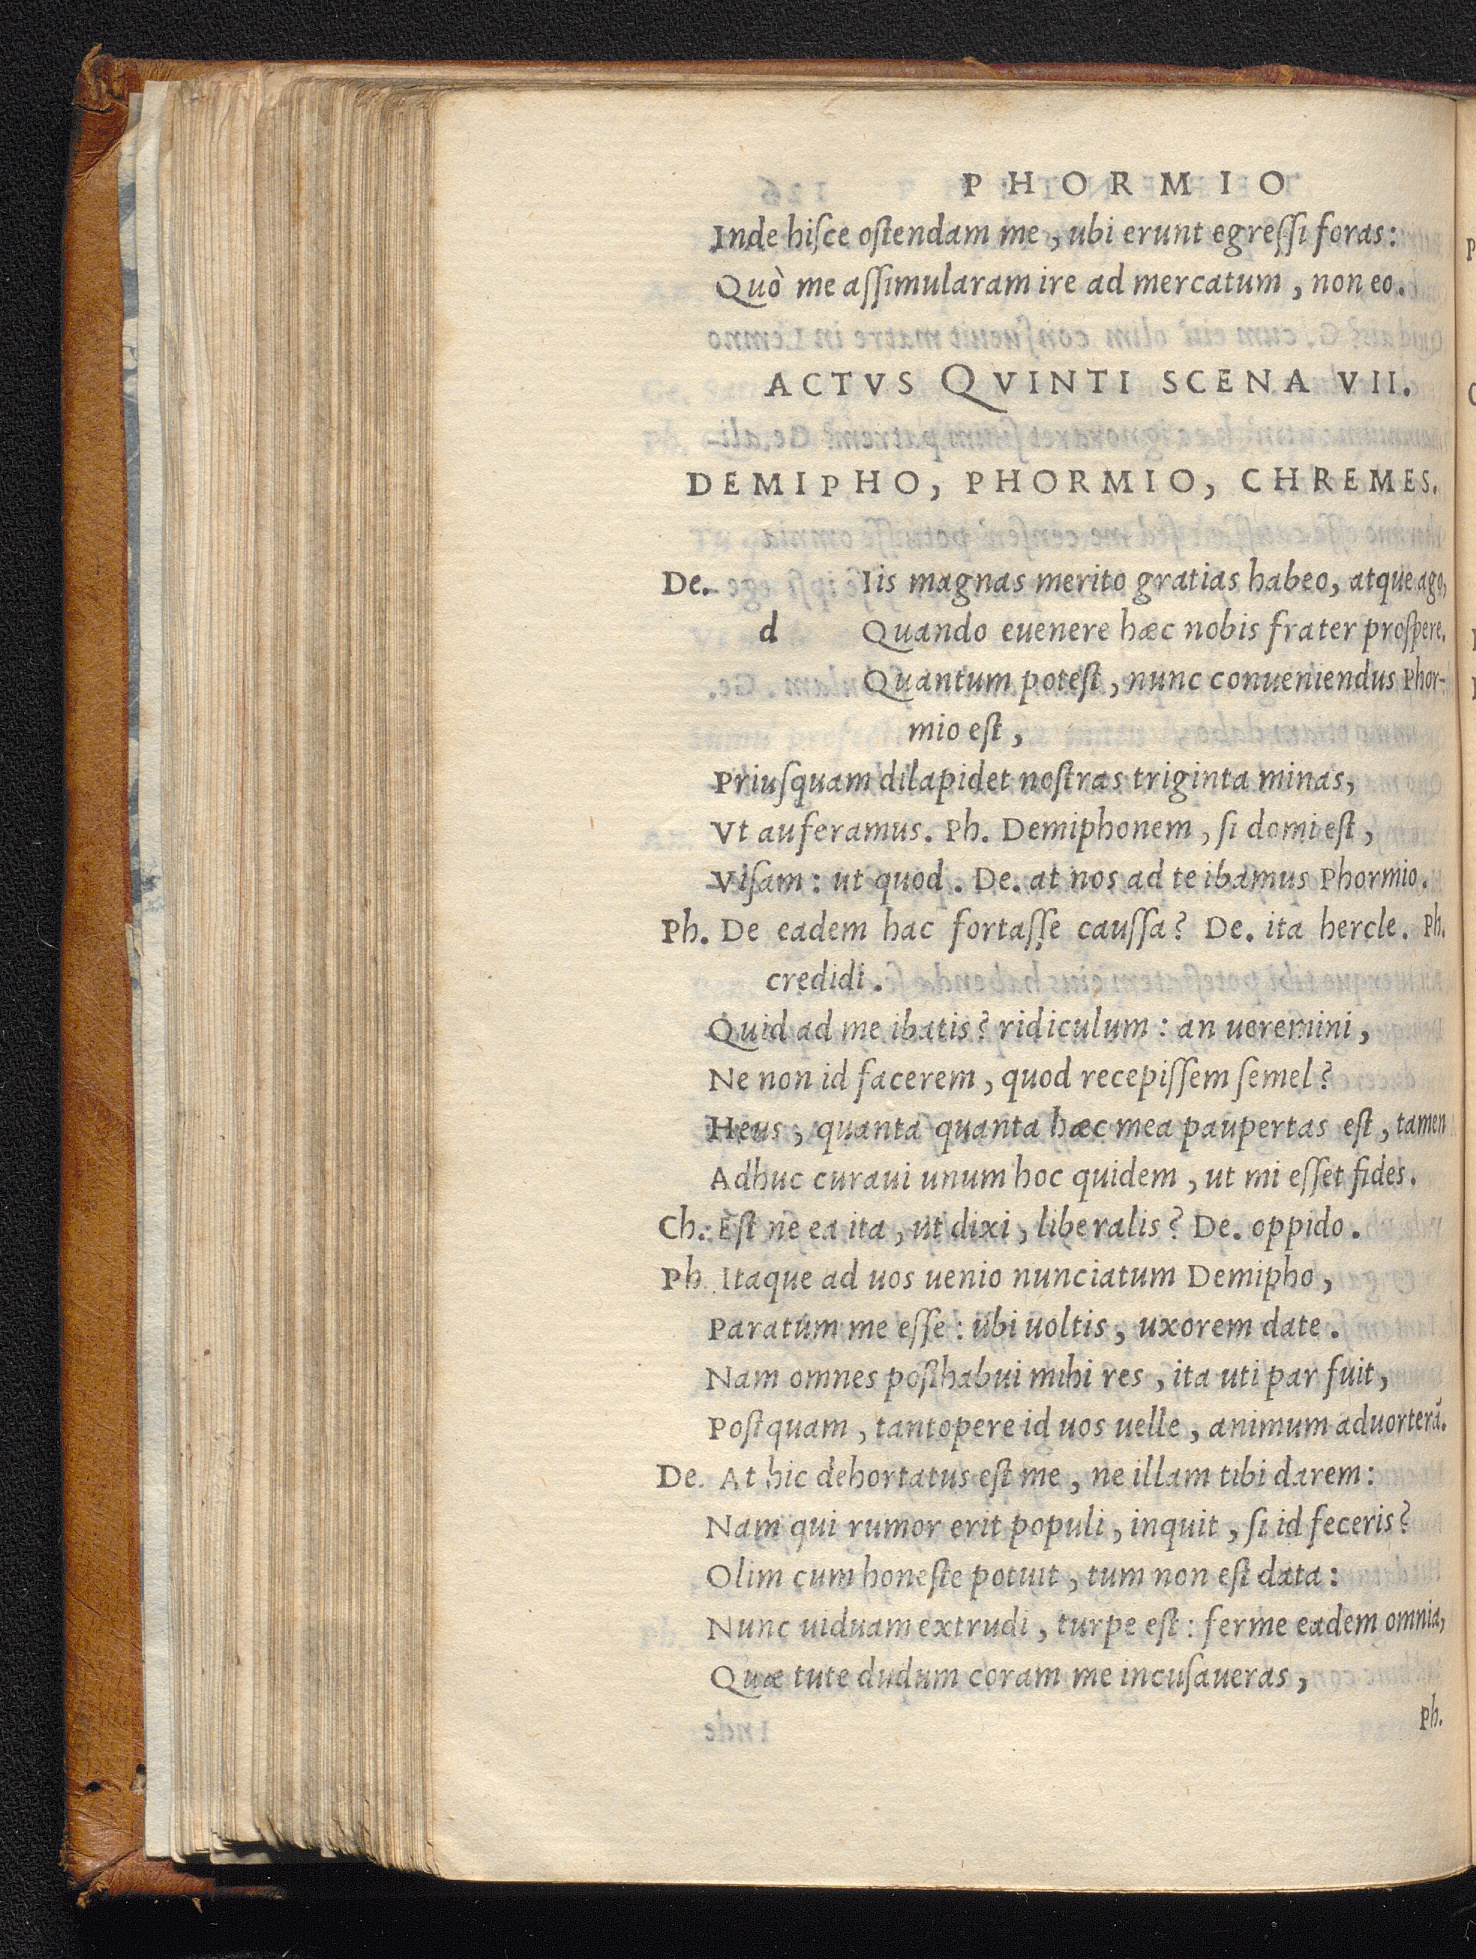 PHORMIO
Inde hiſce oſtendam me, ubi erunt egreſſi foras:
Quò me aſſimularam ire ad mercatum, non eo.
ACTVS QVINTI SCENA VII.
DEMIPHO, PHORMIO, CHREMES.
De. Iis magnas merito gratias habeo, atque ago,
d Quando euenere hæc nobis frater proſpere.
Quantum poteſt, nunc conueniendus Phor-
mio eſt,
Priuſquam dilapidet noſtras triginta minas,
Vt auferamus. Ph. Demiphonem, ſi domi eſt,
Viſam: ut quod. De. at nos ad te ibamus Phormio.
Ph. De eadem hac fortaſſe cauſſa? De. ita hercle. Ph.
credidi.
Quid ad me ibatis? ridiculum: an ueremini,
Ne non id facerem, quod recepiſſem ſemel?
Heus, quanta quanta hæc mea paupertas eſt, tamen
Adhuc curaui unum hoc quidem, ut mi eſſet fides.
Ch. Eſt ne ea ita, ut dixi, liberalis? De. oppido.
Ph. Itaque ad uos uenio nunciatum Demipho,
Paratum me eſſe: ubi uoltis, uxorem date.
Nam omnes poſthabui mihi res, ita uti par fuit,
Poſtquam, tantopere id uos uelle, animum aduorterā.
De. At hic dehortatus eſt me, ne illam tibi darem:
Nam qui rumor erit populi, inquit, ſi id feceris?
Olim cum honeſte potuit, tum non eſt data:
Nunc uiduam extrudi, turpe eſt: ferme eadem omnia,
Quæ tute dudum coram me incuſaueras,
Ph.